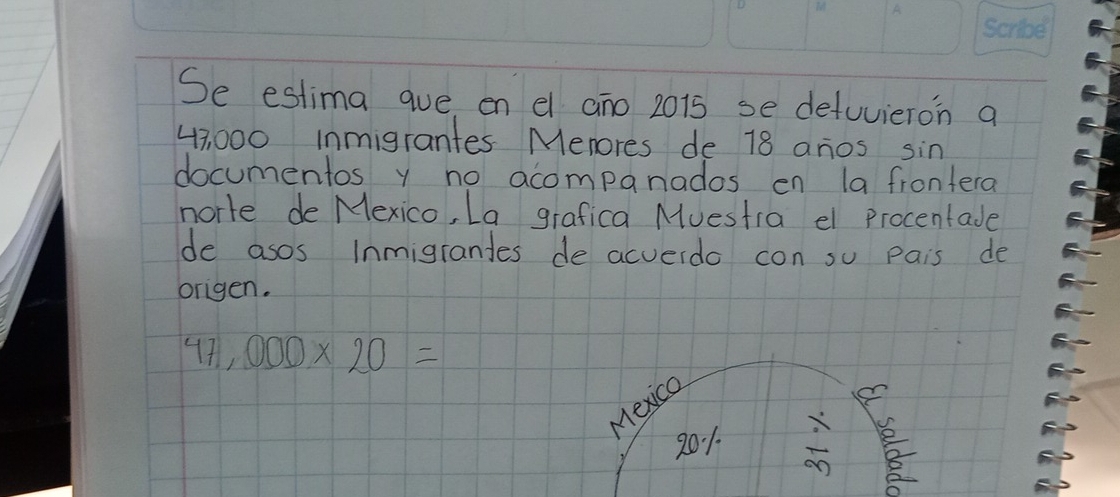 D M A
Scribe
Se estima que en el año 2015 se detuvierón a
47,000 Inmigrantes Menores de 18 años sin
documentos y no acompanados en la frontera
norte de Mexico. La grafica Muestra el Procentaje
de asos Inmigrantes de acuerdo con su Pais de
origen.
47,000 x 20 =
Mexico
20%
31%
El saldado